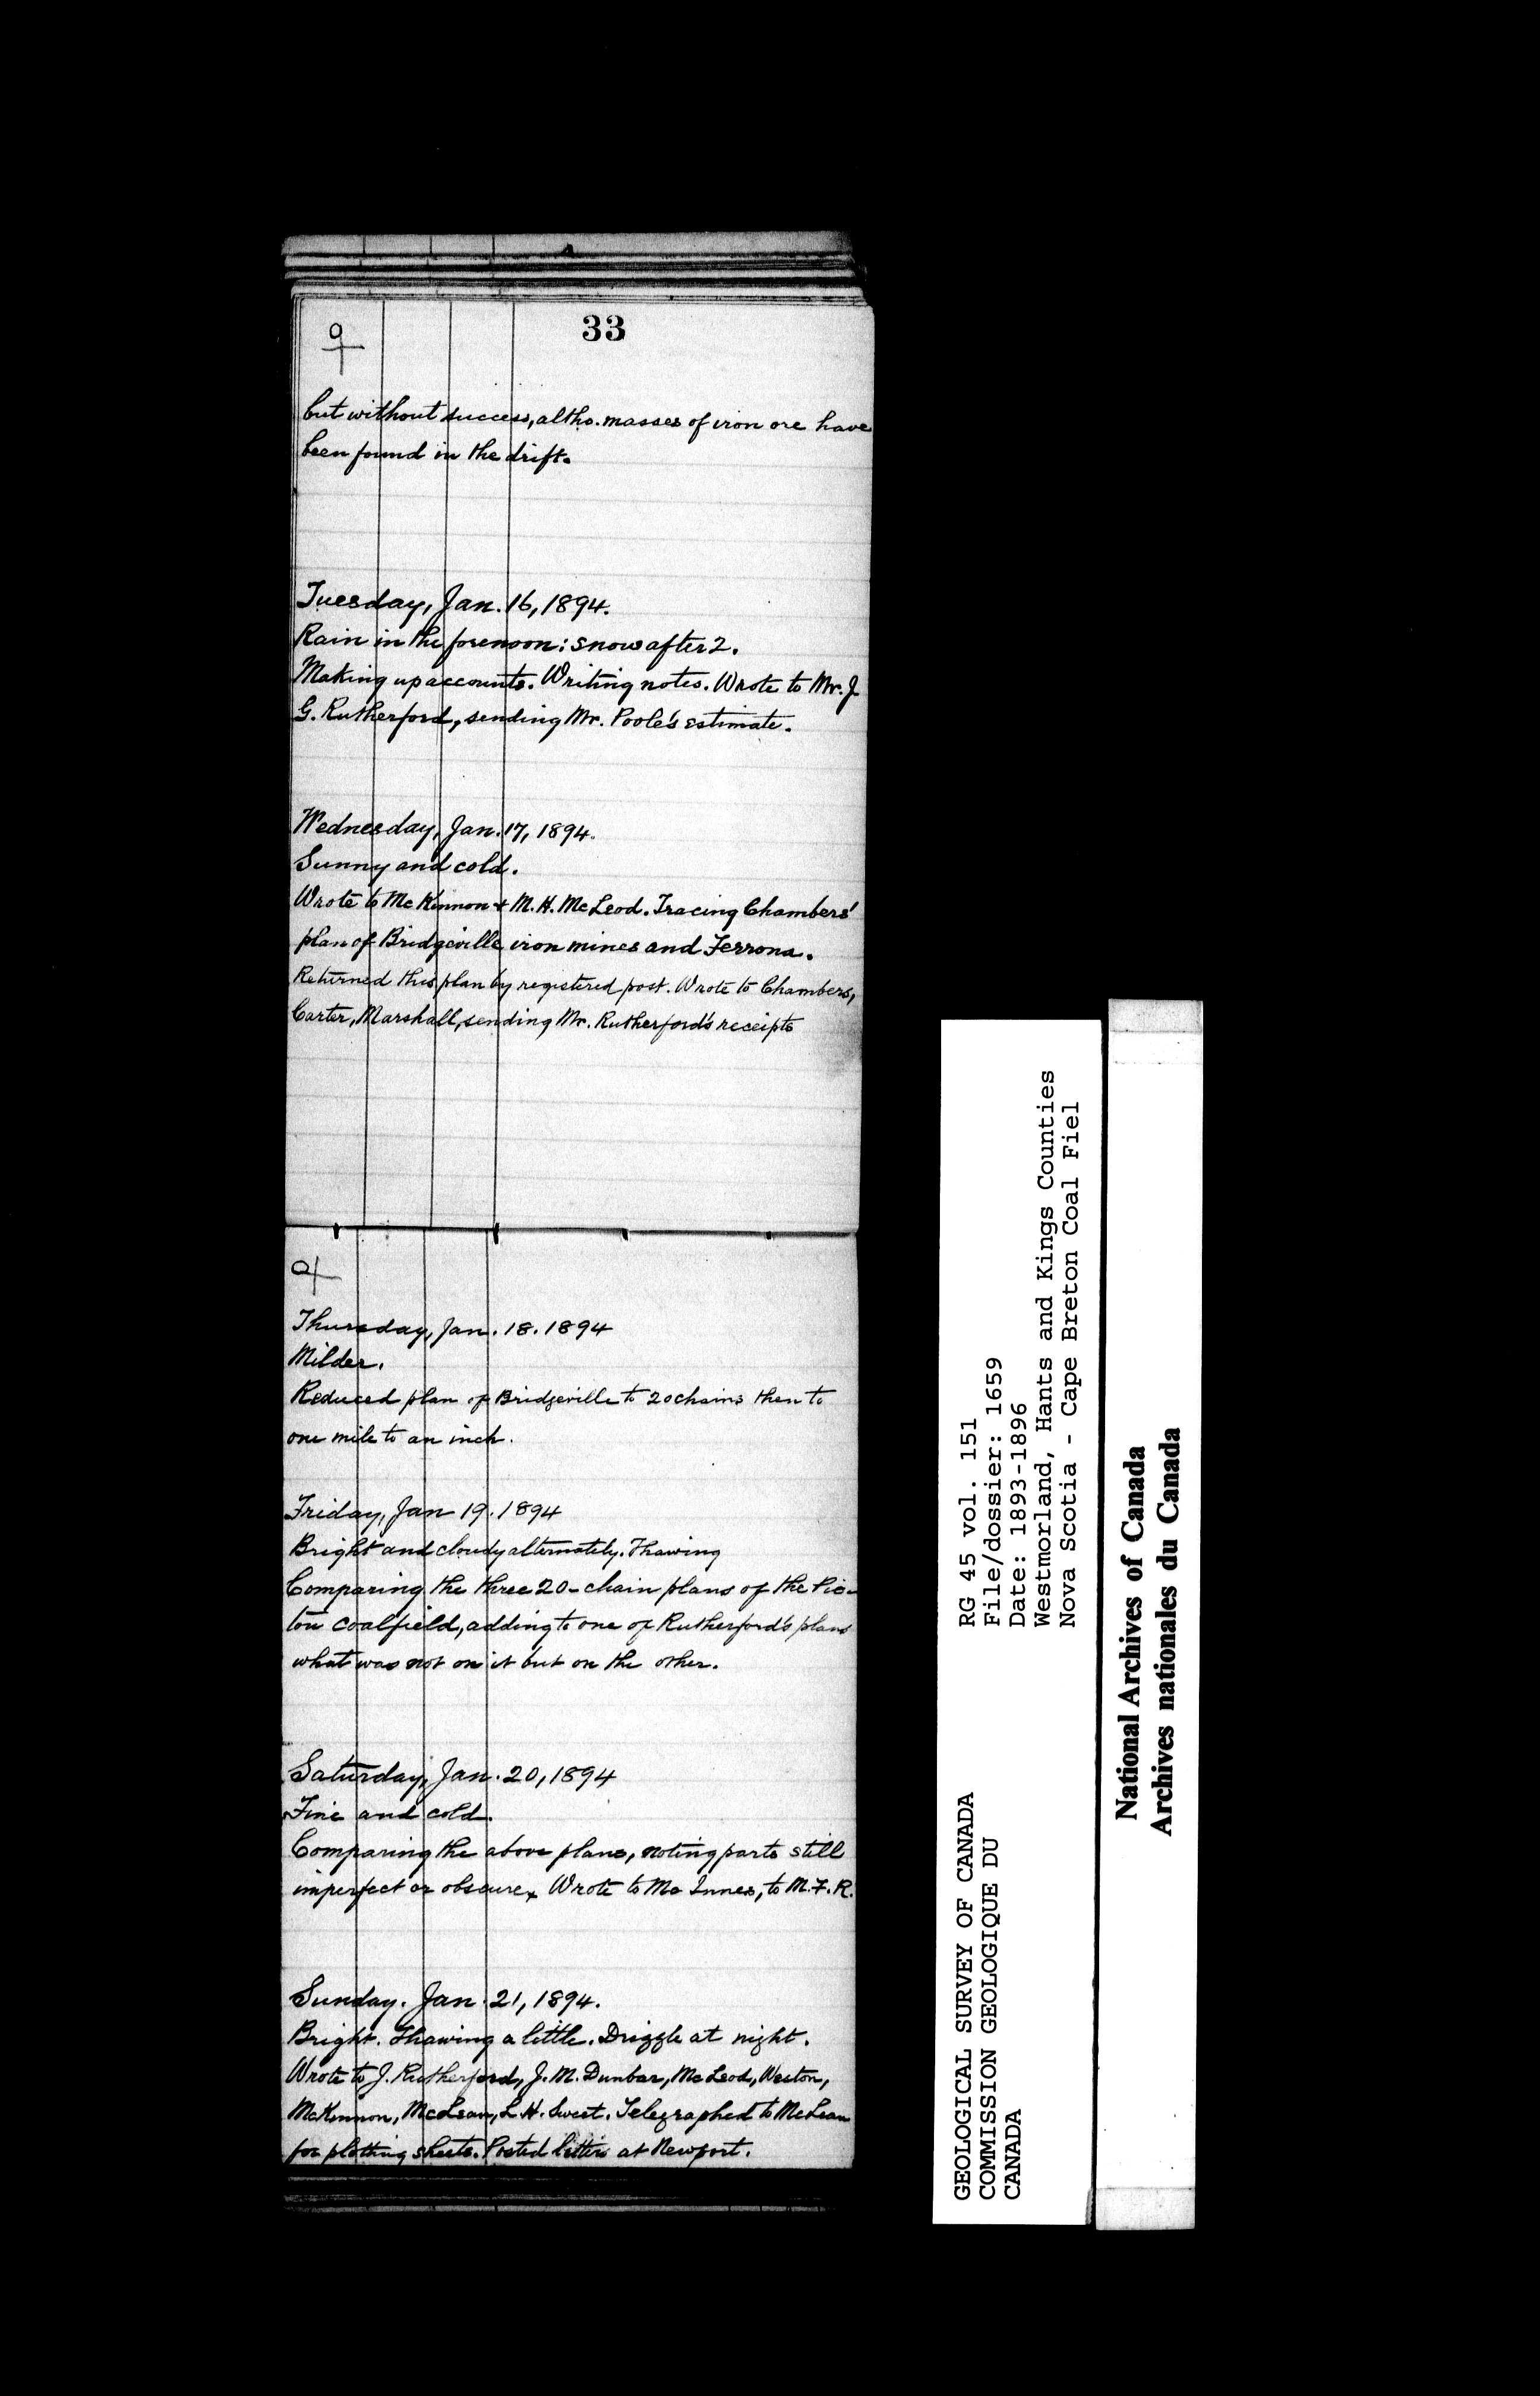 33
but without success, altho. masses of iron ore have
been found in the drift.
Tuesday, Jan. 16, 1894.
Rain in the forenoon: snow after 2.
Making up accounts. Writing notes. Wrote to Mr. J
G. Rutherford, sending Mr. Poole's estimate.
Wednesday, Jan. 17, 1894.
Sunny and cold.
Wrote to McKinnon + M. H. McLeod. Tracing Chambers'
plan of Bridgeville iron mines and Ferrona.
Returned this plan by registered post. Wrote to Chambers,
Carter, Marshall, sending Mr. Rutherford's receipts
Thursday, Jan. 18. 1894
Milder.
Reduced plan of Bridgeville to 20 chains then to
one mile to an inch.
Friday, Jan 19. 1894
Bright and cloudy alternately. Thawing
Comparing the three 20-chain plans of the Pic-
tou coalfield, adding to one of Rutherford's plans
what was not on it but on the other.
Saturday, Jan. 20, 1894
Fine and cold.
Comparing the above plans, noting parts still
imperfect or obscure. Wrote to McInnes, to M. F. R.
Sunday. Jan. 21, 1894.
Bright. Thawing a little. Drizzle at night.
Wrote to J. Rutherford, J. M. Dunbar, McLeod, Weston,
McKinnon, McLean, L. H. Sweet. Telegraphed to McLean
for plotting sheets. Posted letters at Newport.
GEOLOGICAL SURVEY OF CANADA
COMMISSION GEOLOGIQUE DU
CANADA
RG 45 vol. 151
File/dossier: 1659
Date: 1893-1896
Westmorland, Hants and Kings Counties
Nova Scotia - Cape Breton Coal Fiel
National Archives of Canada
Archives nationales du Canada